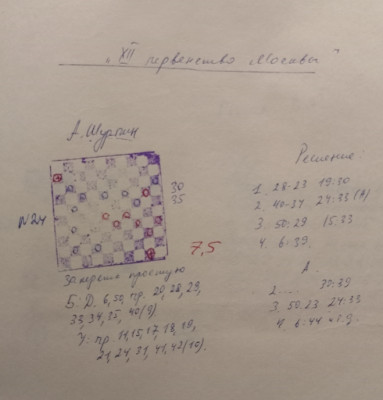 "XII первенство Москвы"
А. Шургин
30
35
№24
7,5
Запереть простую
Б: Д. 6, 50, пр. 20, 28, 29,
33, 34, 35, 40 (9)
Ч: пр. 11, 15, 17, 18, 19,
21, 24, 31, 41, 42 (10).
Решение:
1. 28-23 19:30
2. 40-34 24:33 (A)
3. 50:29 15:33
4. 6:39.
A.
2.... 30:39
3. 50:23 24:33
4. 6:44